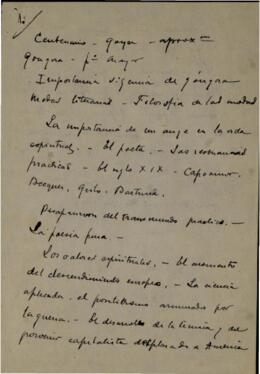 Centenario - Goya - aprox
Góngora - 
Importancia vigencia de Góngora
modas literarias - Filosofía de las modas
La importancia de un auge en la vida
espiritual. - El poeta. - Las necesidades
practicas. - El siglo XIX - Campoamor.
Becquer, Bartrina.
Reaparicion del transmundo poetico. -
La poesía pura. -
Los valores espirituales. - El momento
del descendimiento europeo. - La ciencia
aplicada. - el positivismo arruinado por
la guerra. - El desarrollo de la tecnica y del
porvenir capitalista desplazado a America